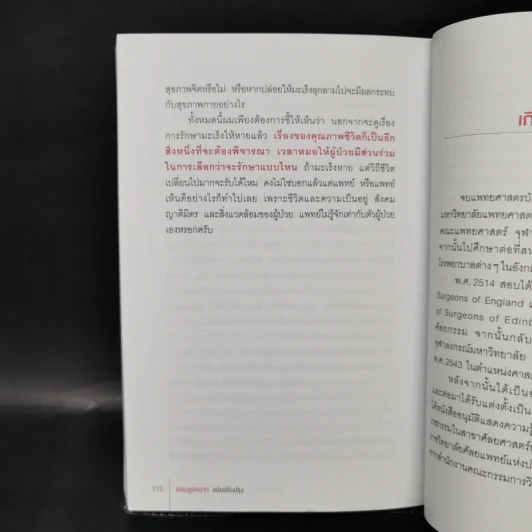 สุขภาพจิตหรือไม่ หรือหากปล่อยให้มะเร็งลุกลามไปจะมีผลกระทบ
กับสุขภาพกายอย่างไร
ทั้งหมดนี้ผมเพียงต้องการชี้ให้เห็นว่า นอกจากจะดูเรื่อง
การรักษามะเร็งให้หายแล้ว เรื่องของคุณภาพชีวิตก็เป็นอีก
สิ่งหนึ่งที่จะต้องพิจารณา เวลาหมอให้ผู้ป่วยมีส่วนร่วม
ในการเลือกว่าจะรักษาแบบไหน ถ้ามะเร็งหาย แต่วิถีชีวิต
เปลี่ยนไปมากจะรับได้ไหม คงไม่ใช่บอกแล้วแต่แพทย์ หรือแพทย์
เห็นดีอย่างไรก็ทำไปเลย เพราะชีวิตและความเป็นอยู่ สังคม
ญาติมิตร และสิ่งแวดล้อมของผู้ป่วย แพทย์ไม่รู้จักเท่ากับตัวผู้ป่วย
เองหรอกครับ
210 ต่อมลูกหมาก ฉบับปรับปรุง
เกี
จบแพทยศาสตร์บั
มหาวิทยาลัยแพทยศาสต
คณะแพทยศาสตร์ จุฬา
จากนั้นไปศึกษาต่อที่สห
โรงพยาบาลต่างๆ ในอังก
พ.ศ.2514 สอบได้
Surgeons of England
of Surgeons of Edinb
ศัลยกรรม จากนั้นกลับ
จุฬาลงกรณ์มหาวิทยาลัย
พ.ศ.2543 ในตำแหน่งศาส
หลังจากนั้นได้เป็นอ
และต่อมาได้รับแต่งตั้งเป็น
ได้หนังสืออนุมัติแสดงความรู้
กรรมในสาขาศัลยศาสตร์
ราชวิทยาลัยศัลยแพทย์แห่งป
จากสำนักงานคณะกรรมการวิ